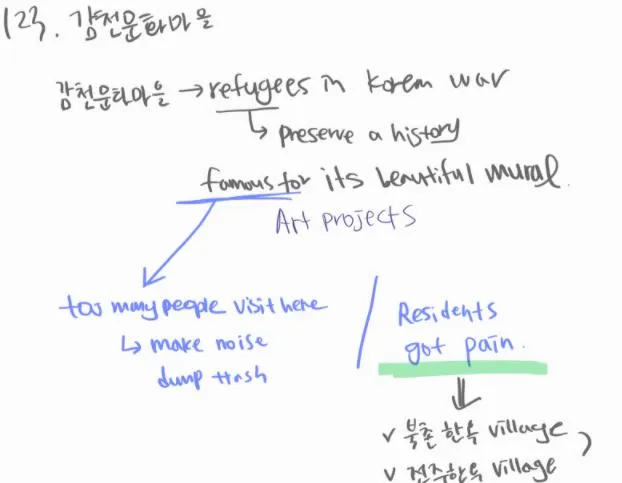 123. 감천문화마을
감천문화마을 → refugees in Korean war
↳ preserve a history
famous for its beautiful mural.
Art projects
too many people visit here
↳ make noise
dump trash
Residents
got pain.
✓ 북촌 한옥 village,
✓ 전주한옥 village